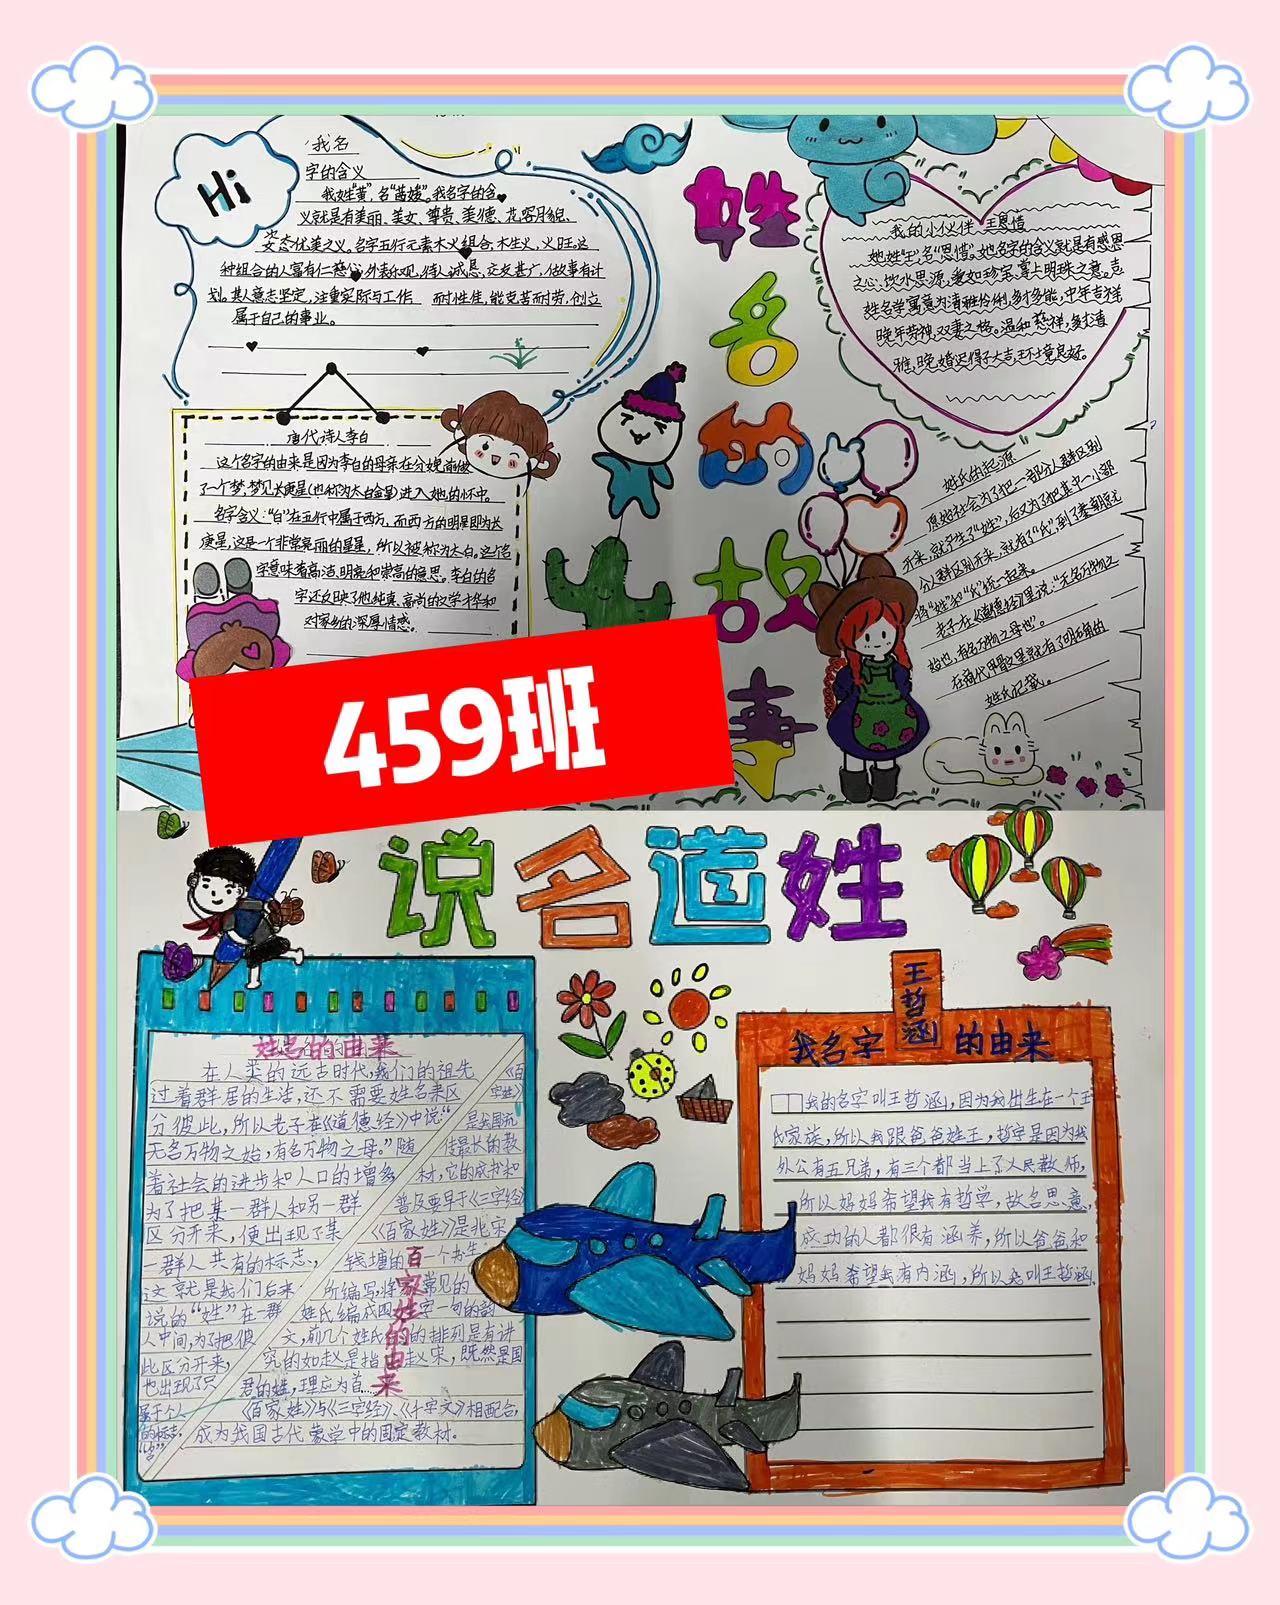 Hi
我名
字的含义
我姓"黄",名"茜媛"。我名字的含
义就是有美丽、美女、尊贵、美德、花容月貌、
姿态优美之义。名字五行元素木火组合,木生火,火旺,这
种组合的人富有仁慈心,外表乐观,待人诚恳,交友甚广,做事有计
划。其人意志坚定,注重实际与工作 耐性佳,能克苦而劳,创立
属于自己的事业。
唐代诗人李白
这个名字的由来是因为李白的母亲在分娩前做
了一个梦,梦见长庚星(也称为太白金星)进入她的怀中。
名字含义:"白"在五行中属于西方,而西方的明星即为长
庚星,这是一个非常亮丽的星星,所以被称为太白。这个名
字意味着高洁、明亮和崇高的意思。李白的名
字还反映了他纯真、高尚的文学才华和
对家乡的深厚情感。
姓名的故事
我的小伙伴 王恩惜
她姓"王",名"恩惜"。她名字的含义就是有感恩
之心、饮水思源,爱如珍宝,掌上明珠之意。言
姓名学寓意为清雅伶俐,多才多能,中年吉祥
晚年劳神,双妻之格。温和慈祥,多才清
雅,晚婚迟得子大吉,环境良好。
姓氏的起源
原始社会为了把一部分人群区别
开来,就产生了"姓",后又为了把其中一小部
分人群区别开来,就有了"氏",到了秦朝就
将"姓"和"氏"统一起来。
老子在《道德经》里说:"无名万物之
始也,有名万物之母也"。
在商代甲骨文里就有了明确的
姓氏记载。
459班
说名道姓
姓名的由来
在人类的远古时代,我们的祖先
过着群居的生活,还不需要姓名来区
分彼此,所以老子在《道德经》中说:"
无名万物之始,有名万物之母。"随
着社会的进步和人口的增多
为了把某一群人和另一群
区分开来,便出现了某
一群人共有的标志,
这就是我们后来
说的"姓"在一群
人中间,为了把彼
此区分开来,
也出现了只
属于个人
的标志,
"名"
百家姓的由来
《百
家姓》
是我国流
传最长的教
材,它的成书和
普及要早于《三字经》
《百家姓》是北宋
钱塘的一个书生
所编写,将常见的
姓氏编成四字一句的韵
文,前几个姓氏的的排列是有讲
究的如赵是指赵宋,既然是国
君的姓,理应为首…
《百家姓》与《三字经》、《千字文》相配合,
成为我国古代蒙学中的固定教材。
我名字王哲涵的由来
我的名字叫王哲涵,因为我出生在一个王
氏家族,所以我跟爸爸姓王,哲字是因为我
外公有五兄弟,有三个都当上了人民教师,
所以妈妈希望我有哲学,故名思意,
成功的人都很有涵养,所以爸爸和
妈妈希望我有内涵,所以我叫王哲涵。